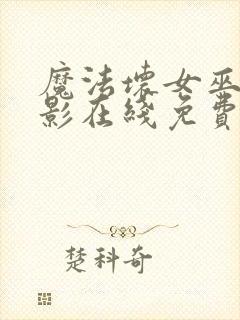 魔法壊女巫
影在綫免費
楚科奇